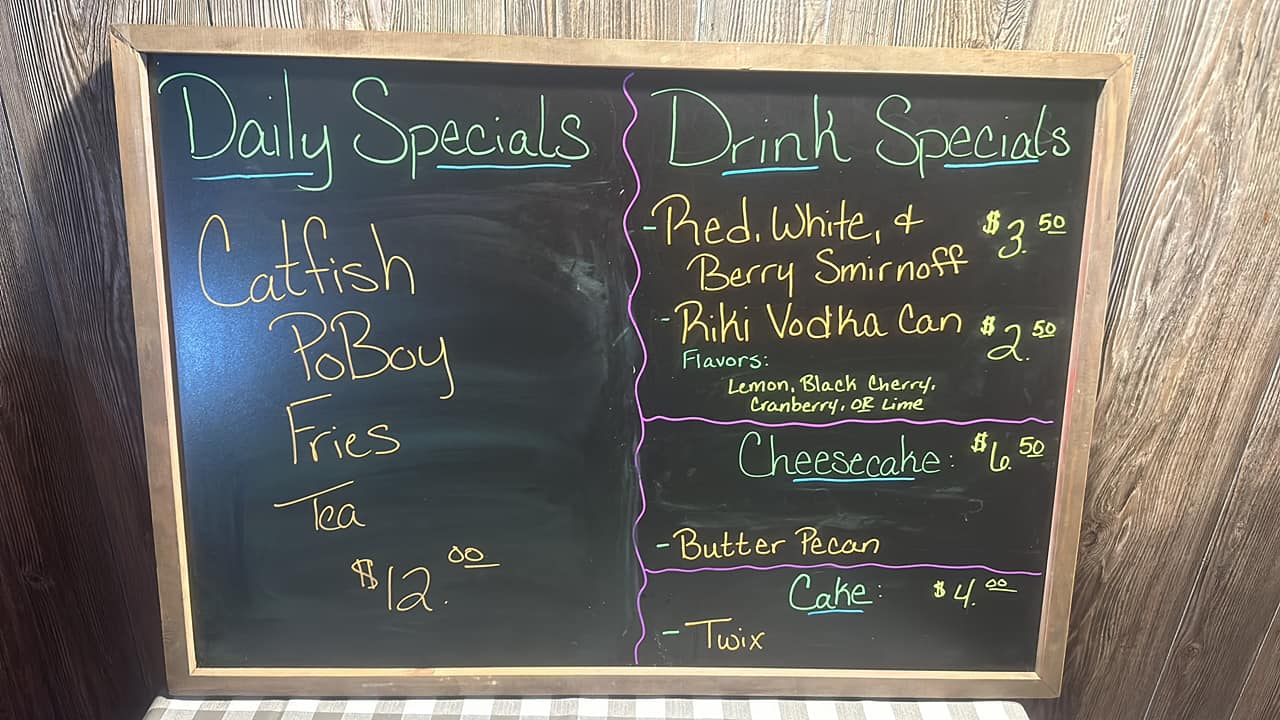 Daily Specials
Catfish
PoBoy
Fries
Tea
$12.00
Drink Specials
- Red, White, & $3.50
Berry Smirnoff
- Riki Vodka Can $2.50
Flavors:
Lemon, Black Cherry,
Cranberry, OR Lime
Cheesecake: $6.50
- Butter Pecan
Cake: $4.00
- Twix